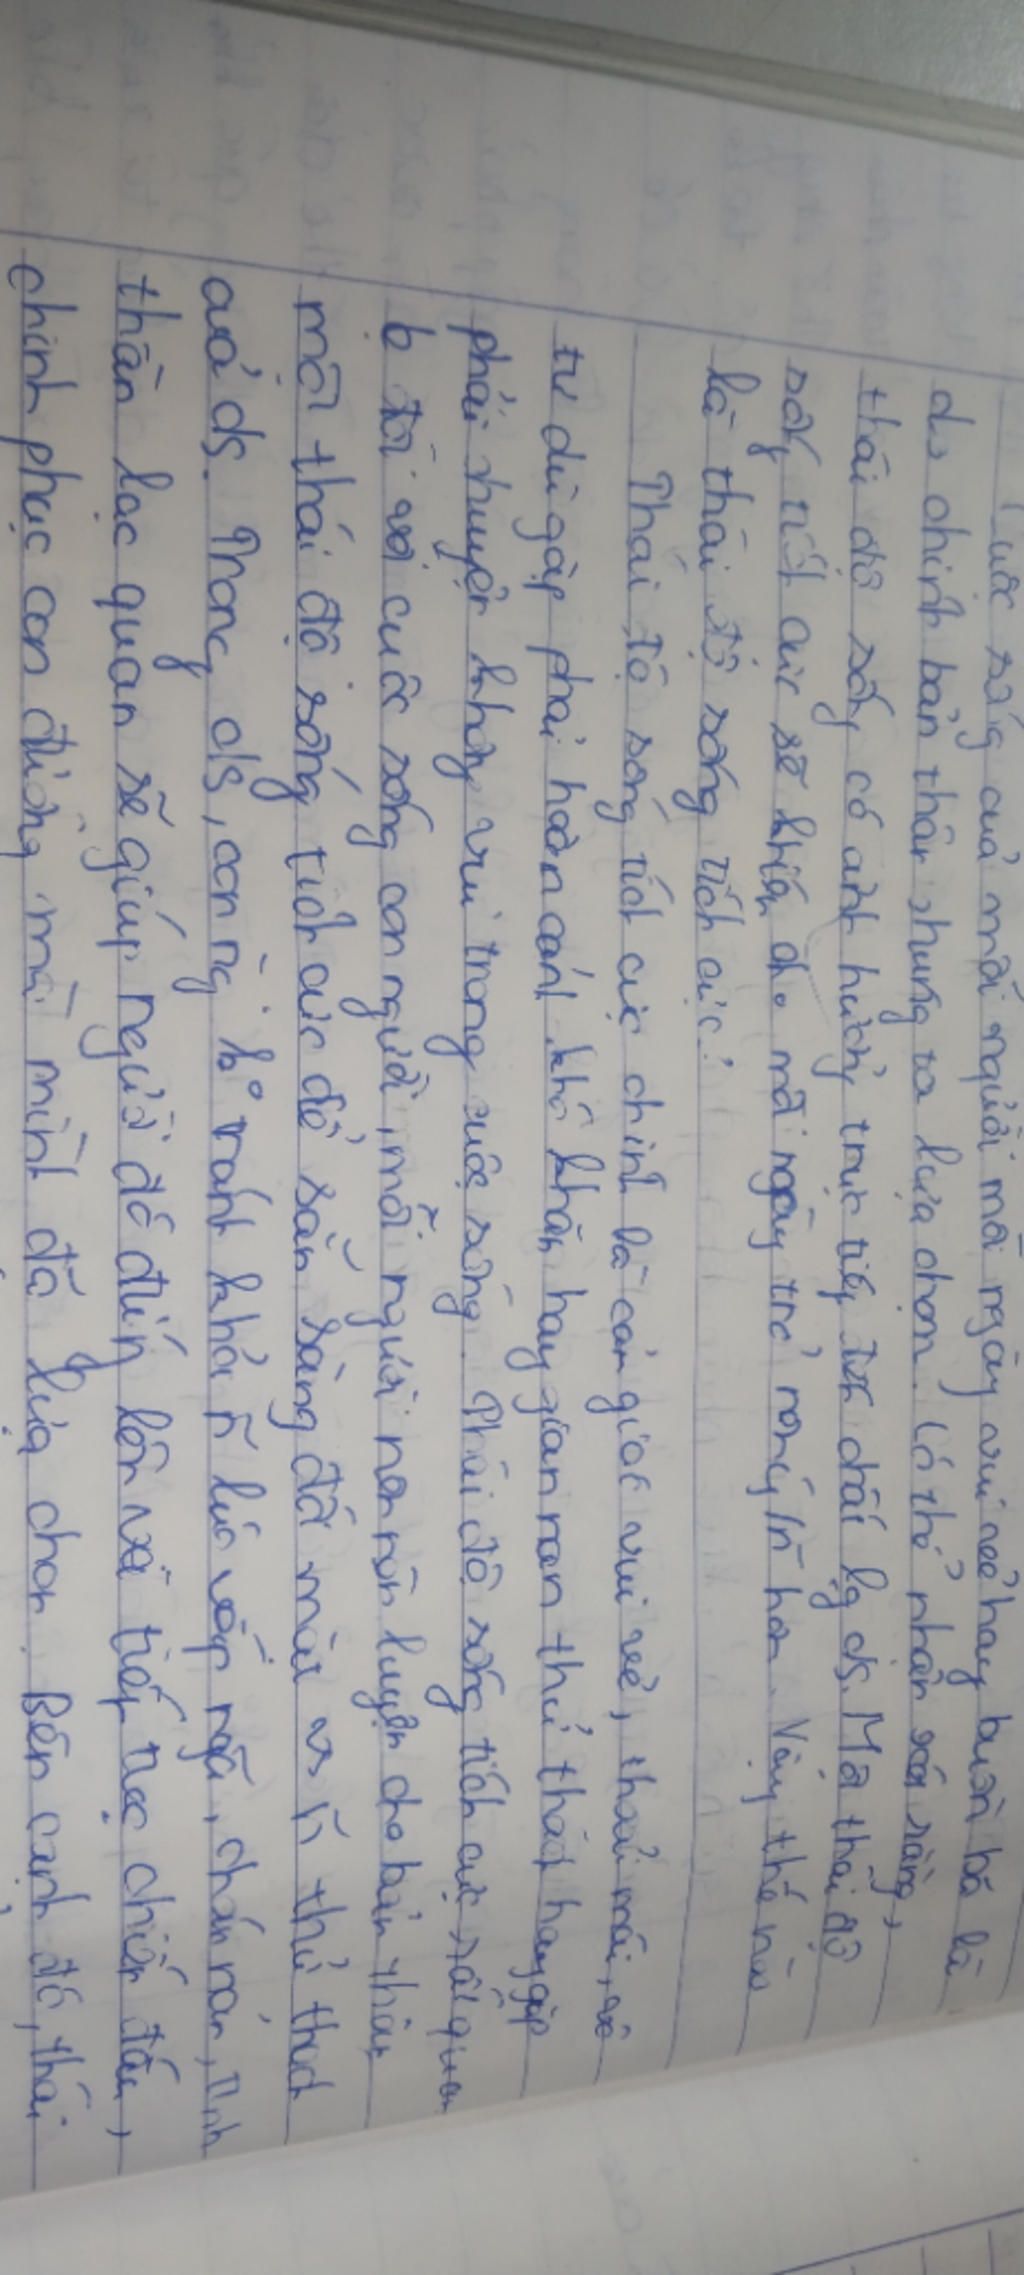 Cuộc sống của mỗi người mỗi ngày vui vẻ hay buồn bã là
do chính bản thân chúng ta lựa chọn. Có thể nhận xét rằng,
thái độ sống có ảnh hưởng trực tiếp tới chất lg ds. Mà thái độ
sống tích cực sẽ khiến cho mỗi ngày trở nên ý n hơn. Vậy thế nào
là thái độ sống tích cực?
Thái độ sống tích cực chính là cảm giác vui vẻ, thoải mái, vô
tư dù gặp phải hoàn cảnh khó khăn hay gian nan thử thách hay gặp
phải chuyện không vui trong cuộc sống. Thái độ sống tích cực rất quan
tọ đối với cuộc sống con người, mỗi người nên rèn luyện cho bản thân
một thái độ sống tích cực để sẵn sàng đối mặt vs n thử thách
của ds. Trong ds, con ng k tránh khỏi n lúc vấp ngã, chán nản, tinh
thần lạc quan sẽ giúp người đó đứng lên và tiếp tục chiến đấu,
chinh phục con đường mà mình đã lựa chọn. Bên cạnh đó, thái